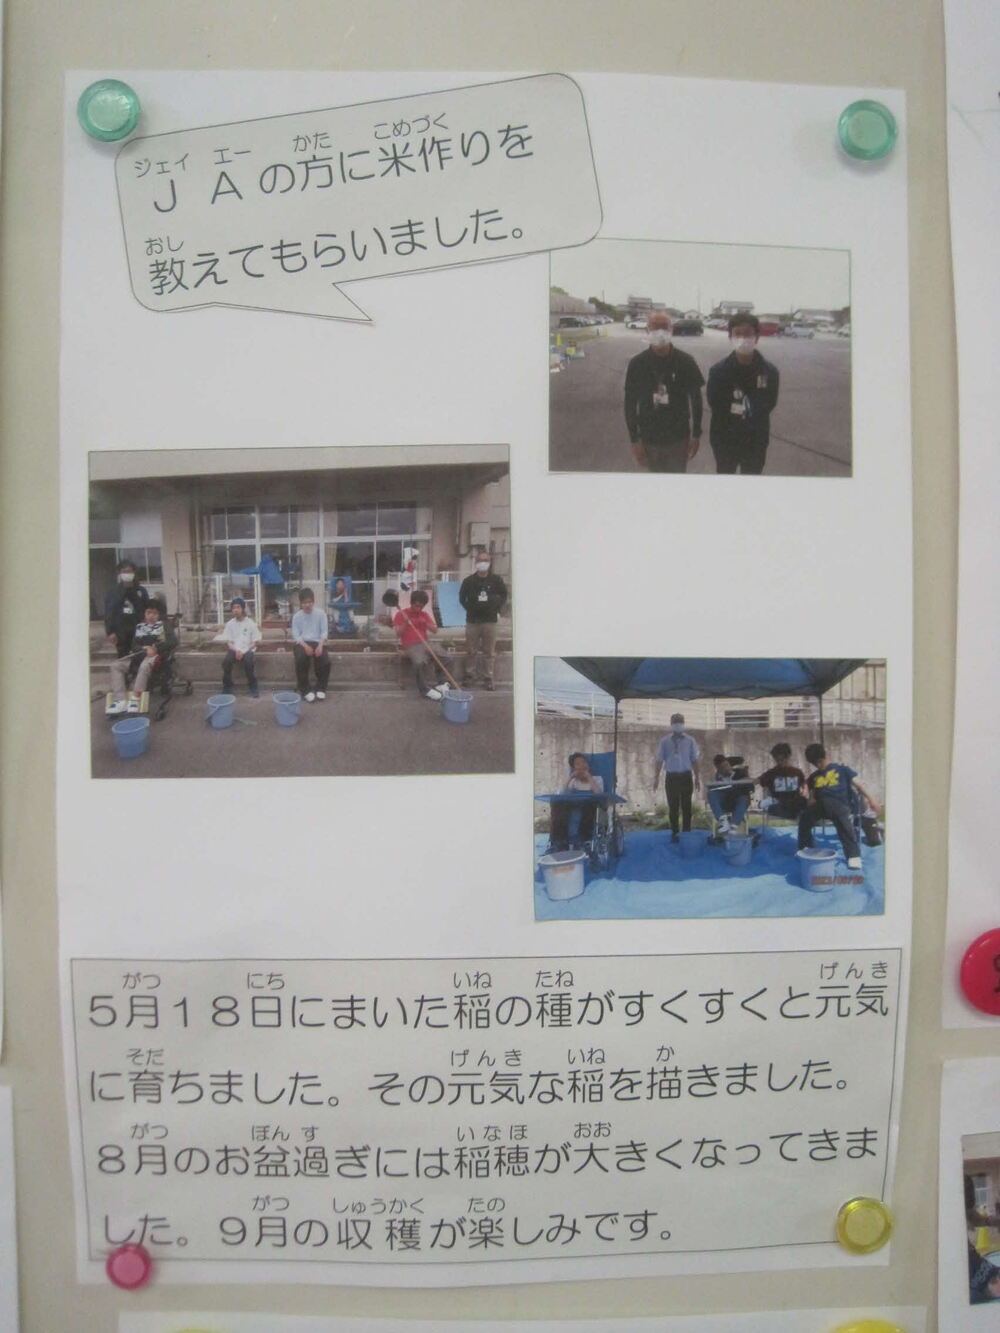 JAの方に米作りを
教えてもらいました。
5月18日にまいた稲の種がすくすくと元気
に育ちました。その元気な稲を描きました。
8月のお盆過ぎには稲穂が大きくなってきま
した。9月の収穫が楽しみです。